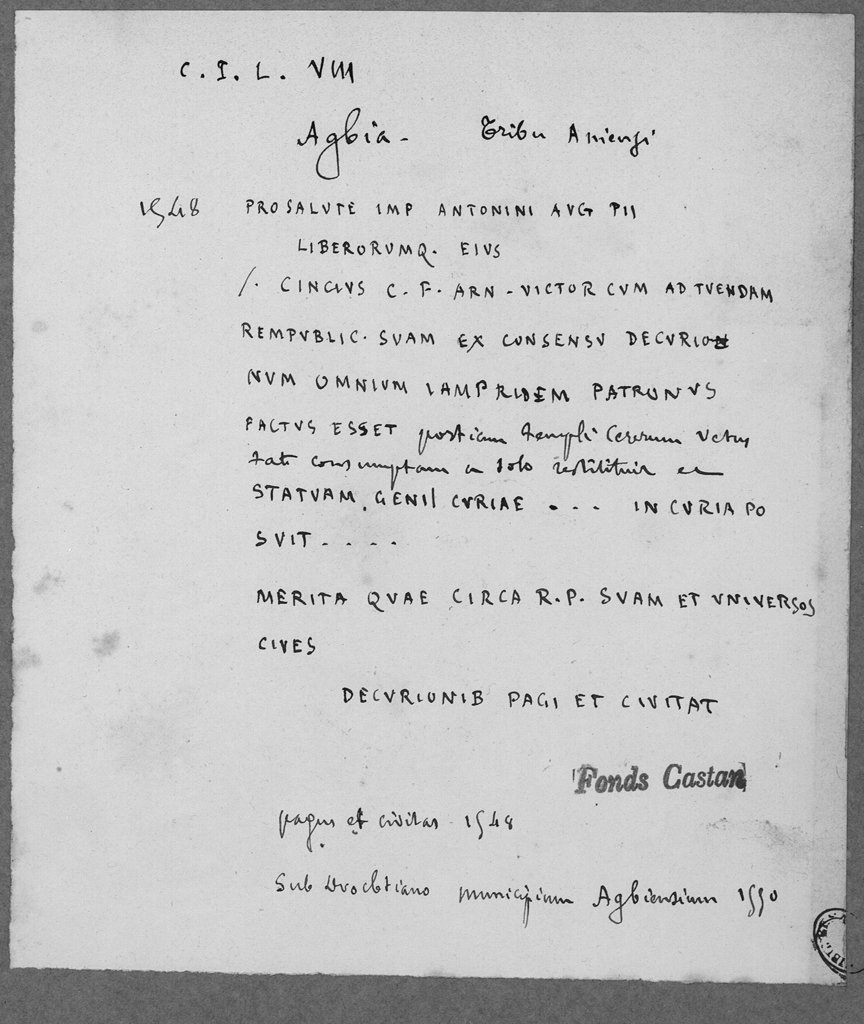 C. I. L. VIII
Agbia - Tribu Aniensi
1548 PRO SALUTE IMP ANTONINI AUG PII
LIBERORVMQ. EIVS
/. CINCIVS C. F. ARN - VICTOR CVM AD TVENDAM
REMPVBLIC. SVAM EX CONSENSV DECVRIO
NVM OMNIVM IAMPRIDEM PATRONVS
FACTVS ESSET porticum templi Cererum vetus
tate consumptam a solo restituit et
STATVAM GENII CVRIAE . . . IN CVRIA PO
SVIT . . . .
MERITA QVAE CIRCA R.P. SVAM ET VNIVERSOS
CIVES
DECVRIONIB PAGI ET CIVITAT
Fonds Castan
pagus et civitas 1548
Sub Diocletiano municipium Agbiensium 1550